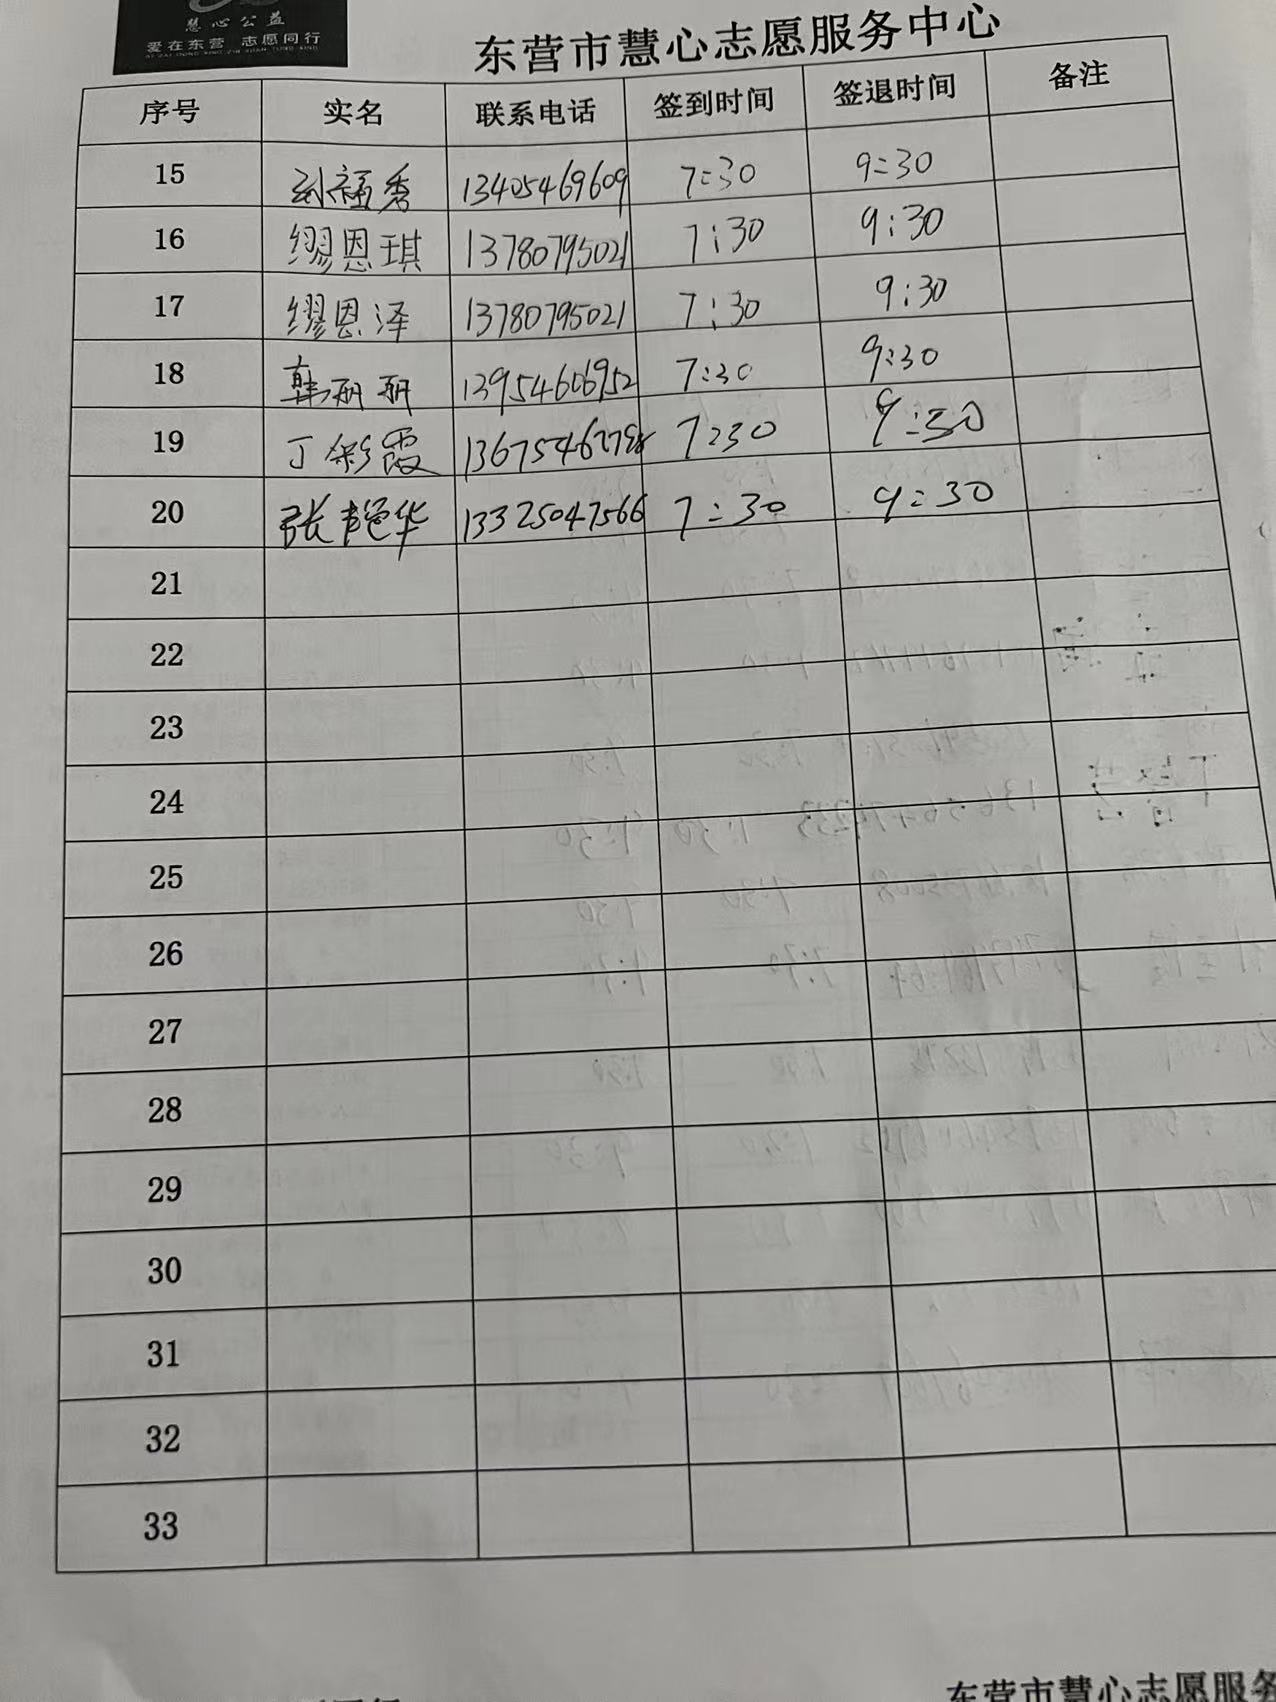 慧心公益
爱在东营 志愿同行
东营市慧心志愿服务中心
序号 实名 联系电话 签到时间 签退时间 备注
15 刘福秀 13405469609 7:30 9:30
16 缪恩琪 13780795021 7:30 9:30
17 缪恩泽 13780795021 7:30 9:30
18 韩丽丽 13954606952 7:30 9:30
19 丁彩霞 7:30 9:30
20 张艳华 13325047566 7:30 9:30
21
22
23
24
25
26
27
28
29
30
31
32
33
东营市慧心志愿服务